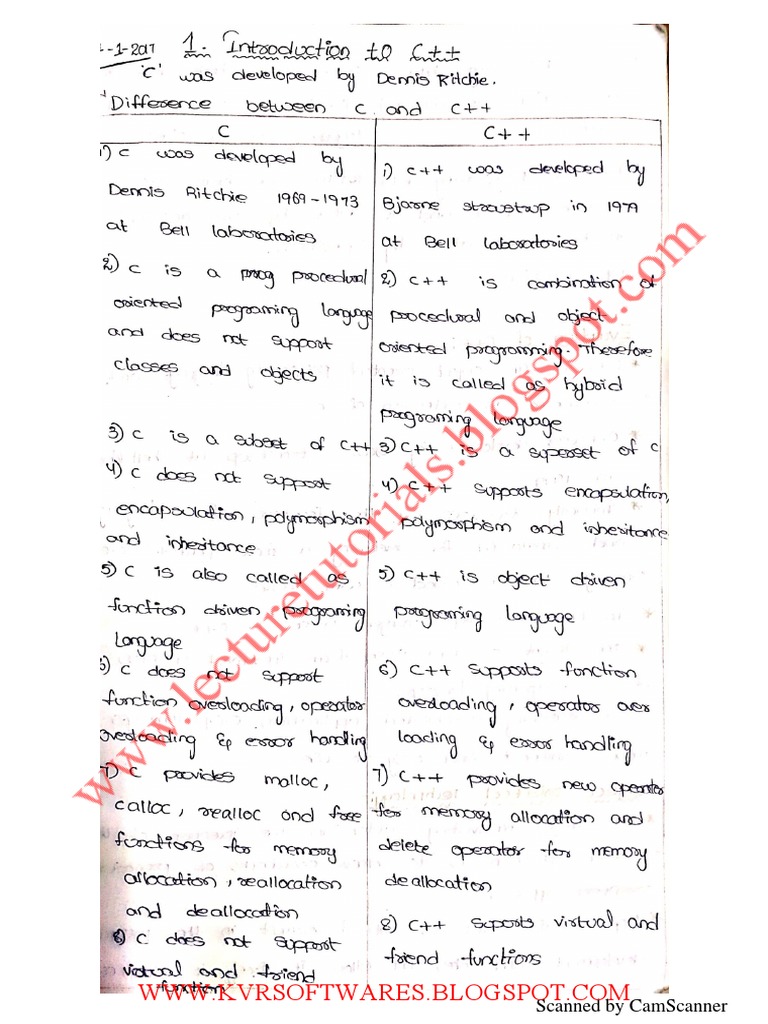 -1-2017 1. Introduction to C++
'C' was developed by Dennis Ritchie.
Difference between C and C++
C
1) C was developed by
Dennis Ritchie 1969-1973
at Bell laboratories
2) C is a prog procedural
oriented programing language
and does not support
classes and objects
3) C is a subset of C++
4) C does not support
encapsulation, polymorphism
and inheritance
5) C is also called as
function driven programing
language
6) C does not support
function overloading, operator
overloading & error handling
7) C provides malloc,
calloc, realloc and free
functions for memory
allocation, reallocation
and deallocation
8) C does not support
virtual and friend
function
C++
1) C++ was developed by
Bjarne stroustrup in 1979
at Bell laboratories
2) C++ is combination of
procedural and object
oriented programming. Therefore
it is called as hybrid
programing language
3) C++ is a superset of C
4) C++ supports encapsulation,
polymorphism and inheritance
5) C++ is object driven
programing language
6) C++ supports function
overloading, operator over
loading & error handling
7) C++ provides new operator
for memory allocation and
delete operator for memory
deallocation
8) C++ suports virtual and
friend functions
www.lecturetutorials.blogspot.com
WWW.KVRSOFTWARES.BLOGSPOT.COM
Scanned by CamScanner